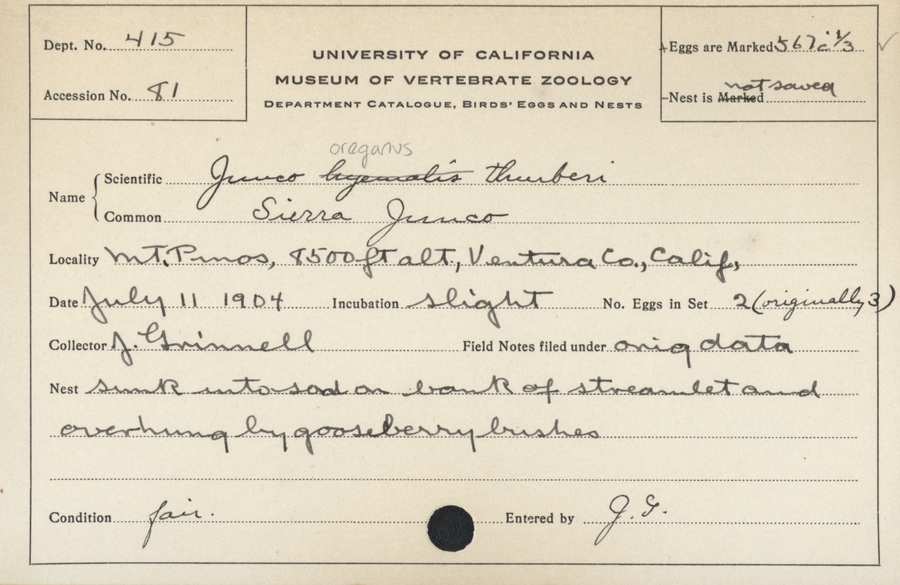 Dept. No. 415
Accession No. 81
UNIVERSITY OF CALIFORNIA
MUSEUM OF VERTEBRATE ZOOLOGY
DEPARTMENT CATALOGUE, BIRDS' EGGS AND NESTS
Eggs are Marked 567a 1/3 ✓
not saved
Nest is Marked
oreganus
Name
Scientific Junco hyemalis thurberi
Common Sierra Junco
Locality Mt. Pinos, 8500 ft alt., Ventura Co., Calif,
Date July 11 1904 Incubation slight No. Eggs in Set 2 (originally 3)
Collector J. Grinnell Field Notes filed under orig data
Nest sunk into sod on bank of streamlet and
overhung by gooseberry bushes
Condition fair. Entered by J. G.